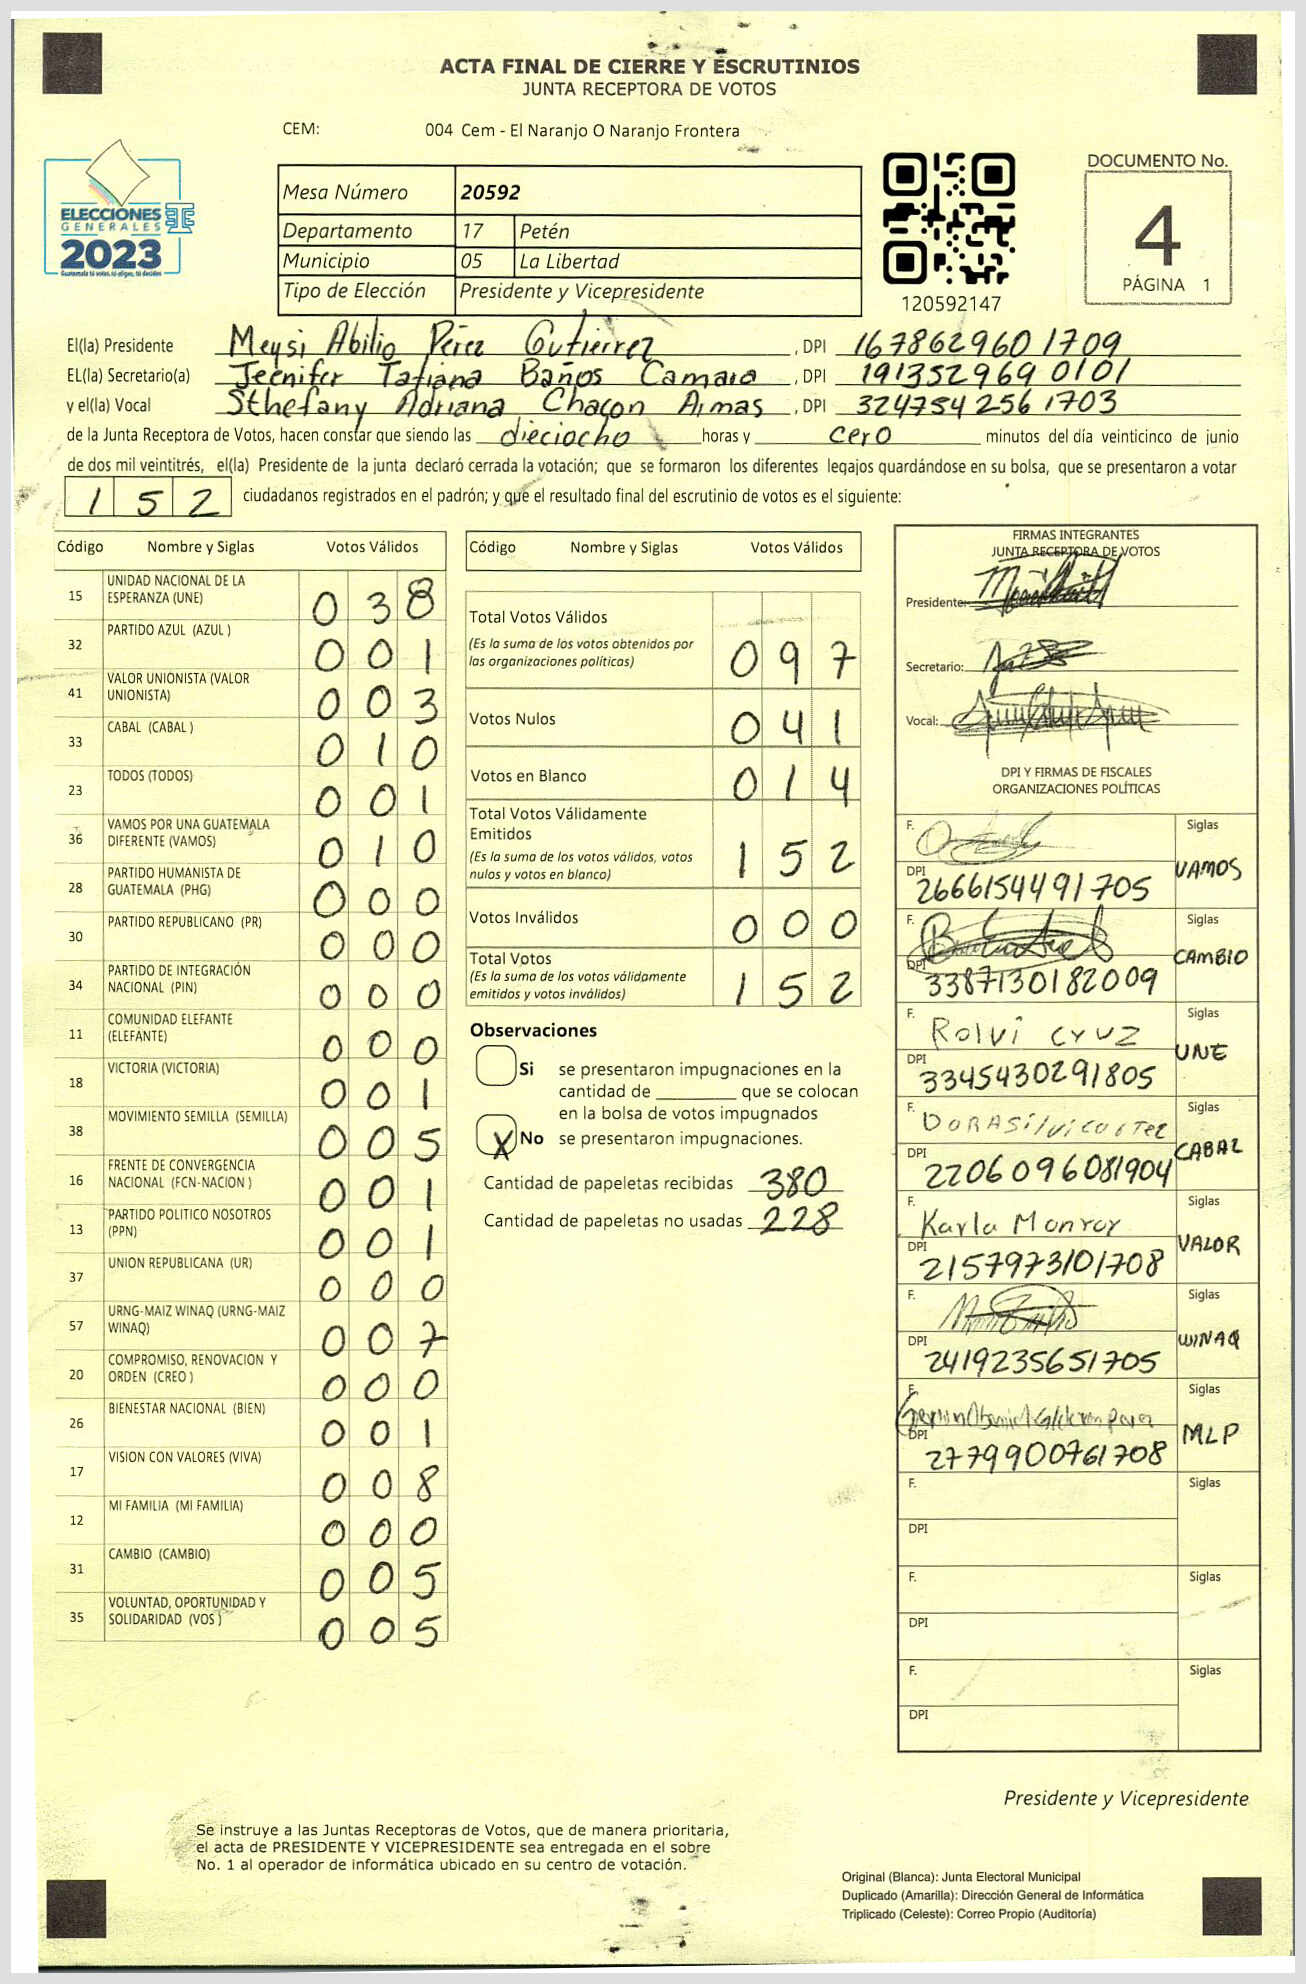 ACTA FINAL DE CIERRE Y ESCRUTINIOS
JUNTA RECEPTORA DE VOTOS
CEM: 004 Cem - El Naranjo O Naranjo Frontera
ELECCIONES
GENERALES
2023
Guatemala tú votas, tú eliges, tú decides
Mesa Número 20592
Departamento 17 Petén
Municipio 05 La Libertad
Tipo de Elección Presidente y Vicepresidente
120592147
DOCUMENTO No.
4
PÁGINA 1
El(la) Presidente Meysi Abilio Pérez Gutierrez , DPI 167862960 1709
EL(la) Secretario(a) Jeenifer Tatiana Baños Camara , DPI 191352969 0101
y el(la) Vocal Sthefany Adriana Chacon Armas , DPI 324754256 1703
de la Junta Receptora de Votos, hacen constar que siendo las dieciocho horas y cero minutos del día veinticinco de junio
de dos mil veintitrés, el(la) Presidente de la junta declaró cerrada la votación; que se formaron los diferentes legajos quardándose en su bolsa, que se presentaron a votar
1 5 2 ciudadanos registrados en el padrón; y que el resultado final del escrutinio de votos es el siguiente:
Código Nombre y Siglas Votos Válidos
15 UNIDAD NACIONAL DE LA ESPERANZA (UNE) 0 3 8
32 PARTIDO AZUL (AZUL ) 0 0 1
41 VALOR UNIONISTA (VALOR UNIONISTA) 0 0 3
33 CABAL (CABAL ) 0 1 0
23 TODOS (TODOS) 0 0 1
36 VAMOS POR UNA GUATEMALA DIFERENTE (VAMOS) 0 1 0
28 PARTIDO HUMANISTA DE GUATEMALA (PHG) 0 0 0
30 PARTIDO REPUBLICANO (PR) 0 0 0
34 PARTIDO DE INTEGRACIÓN NACIONAL (PIN) 0 0 0
11 COMUNIDAD ELEFANTE (ELEFANTE) 0 0 0
18 VICTORIA (VICTORIA) 0 0 1
38 MOVIMIENTO SEMILLA (SEMILLA) 0 0 5
16 FRENTE DE CONVERGENCIA NACIONAL (FCN-NACION ) 0 0 1
13 PARTIDO POLITICO NOSOTROS (PPN) 0 0 1
37 UNION REPUBLICANA (UR) 0 0 0
57 URNG-MAIZ WINAQ (URNG-MAIZ WINAQ) 0 0 7
20 COMPROMISO, RENOVACION Y ORDEN (CREO ) 0 0 0
26 BIENESTAR NACIONAL (BIEN) 0 0 1
17 VISION CON VALORES (VIVA) 0 0 8
12 MI FAMILIA (MI FAMILIA) 0 0 0
31 CAMBIO (CAMBIO) 0 0 5
35 VOLUNTAD, OPORTUNIDAD Y SOLIDARIDAD (VOS ) 0 0 5
Código Nombre y Siglas Votos Válidos
Total Votos Válidos
(Es la suma de los votos obtenidos por
las organizaciones políticas) 0 9 7
Votos Nulos 0 4 1
Votos en Blanco 0 1 4
Total Votos Válidamente
Emitidos
(Es la suma de los votos válidos, votos
nulos y votos en blanco) 1 5 2
Votos Inválidos 0 0 0
Total Votos
(Es la suma de los votos válidamente
emitidos y votos inválidos) 1 5 2
Observaciones
Si se presentaron impugnaciones en la
cantidad de ________ que se colocan
en la bolsa de votos impugnados
X No se presentaron impugnaciones.
Cantidad de papeletas recibidas 380
Cantidad de papeletas no usadas 228
FIRMAS INTEGRANTES
JUNTA RECEPTORA DE VOTOS
Presidente:
Secretario:
Vocal:
DPI Y FIRMAS DE FISCALES
ORGANIZACIONES POLÍTICAS
F. Siglas
DPI 2666154491705 VAMOS
F. Siglas
DPI 3387130182009 CAMBIO
F. Rolvi cruz Siglas
DPI 3345430291805 UNE
F. Siglas
DPI 2206096081904 CABAL
F. Karla Monroy Siglas
DPI 2157973101708 VALOR
F. Siglas
DPI 2419235651705 WINAQ
F. Siglas
DPI 2779900761708 MLP
F. Siglas
DPI
F. Siglas
DPI
F. Siglas
DPI
Presidente y Vicepresidente
Se instruye a las Juntas Receptoras de Votos, que de manera prioritaria,
el acta de PRESIDENTE Y VICEPRESIDENTE sea entregada en el sobre
No. 1 al operador de informática ubicado en su centro de votación.
Original (Blanca): Junta Electoral Municipal
Duplicado (Amarilla): Dirección General de Informática
Triplicado (Celeste): Correo Propio (Auditoría)